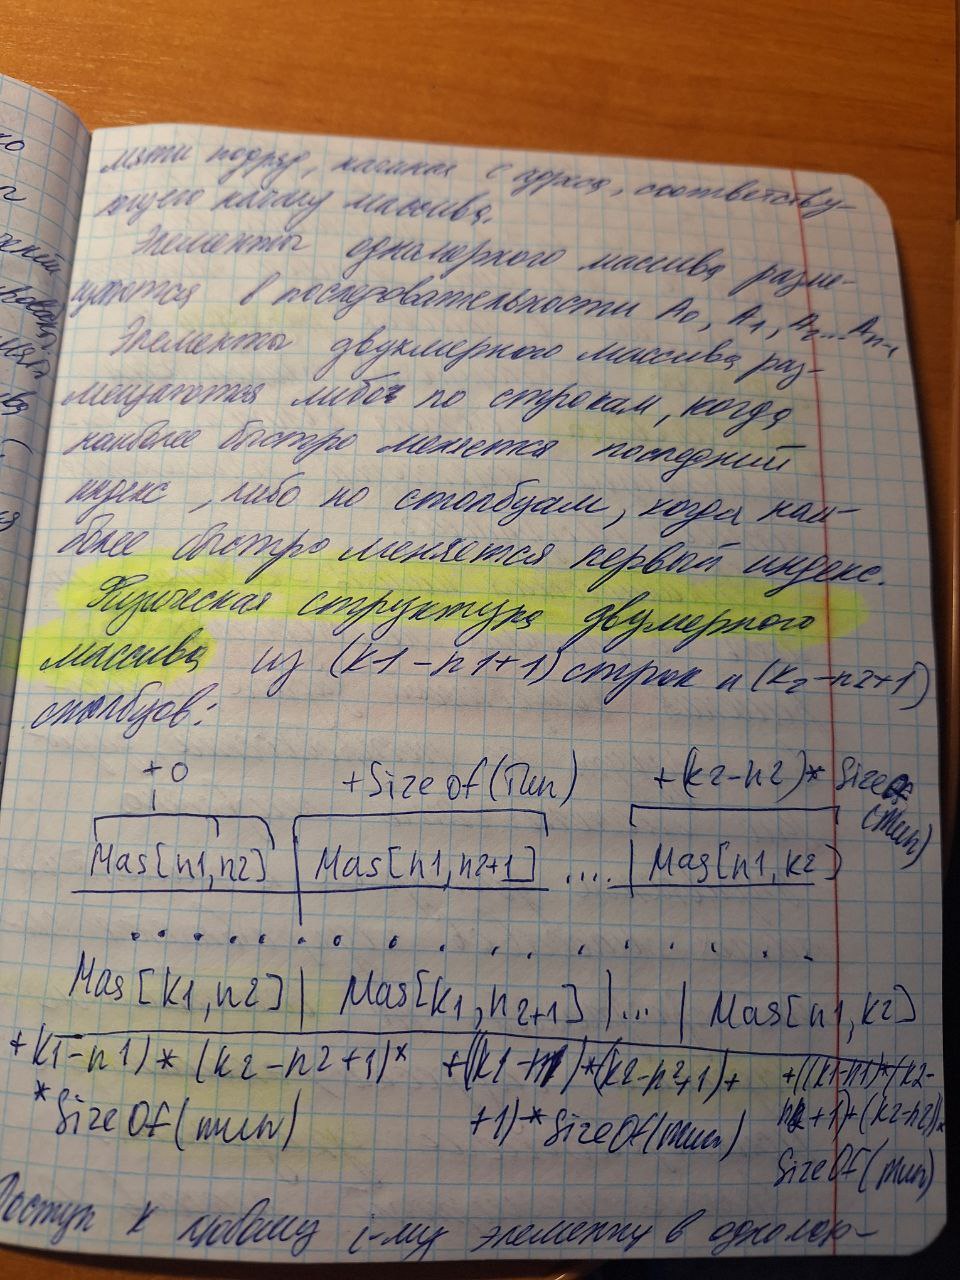 мяти подряд, начиная с адреса, соответству-
ющего началу массива.
Элементы одномерного массива разме-
щаются в последовательности A0, A1, A2... An-1
Элементы двухмерного массива раз-
мещаются либо по строкам, когда
наиболее быстро меняется последний
индекс, либо по столбцам, когда наи-
более быстро меняется первый индекс.
Физическая структура двумерного
массива из (k1-n1+1) строк и (k2-n2+1)
столбцов:
+0 +SizeOf(Тип) +(k2-n2)* SizeOf
(тип)
Mas[n1,n2] | Mas[n1,n2+1] .... | Mas[n1,k2]
. . . . . . . . . . . . . . . . . .
Mas[k1,n2] | Mas[k1,n2+1] |... | Mas[n1,k2]
+k1-n1)*(k2-n2+1)* +((k1-n1)*(k2-n2+1)+ +((k1-n1)*(k2-
*SizeOf(тип) +1)*SizeOf(тип) n2+1)+(k2-n2))*
SizeOf(тип)
Доступ к любому i-му элементу в одномер-